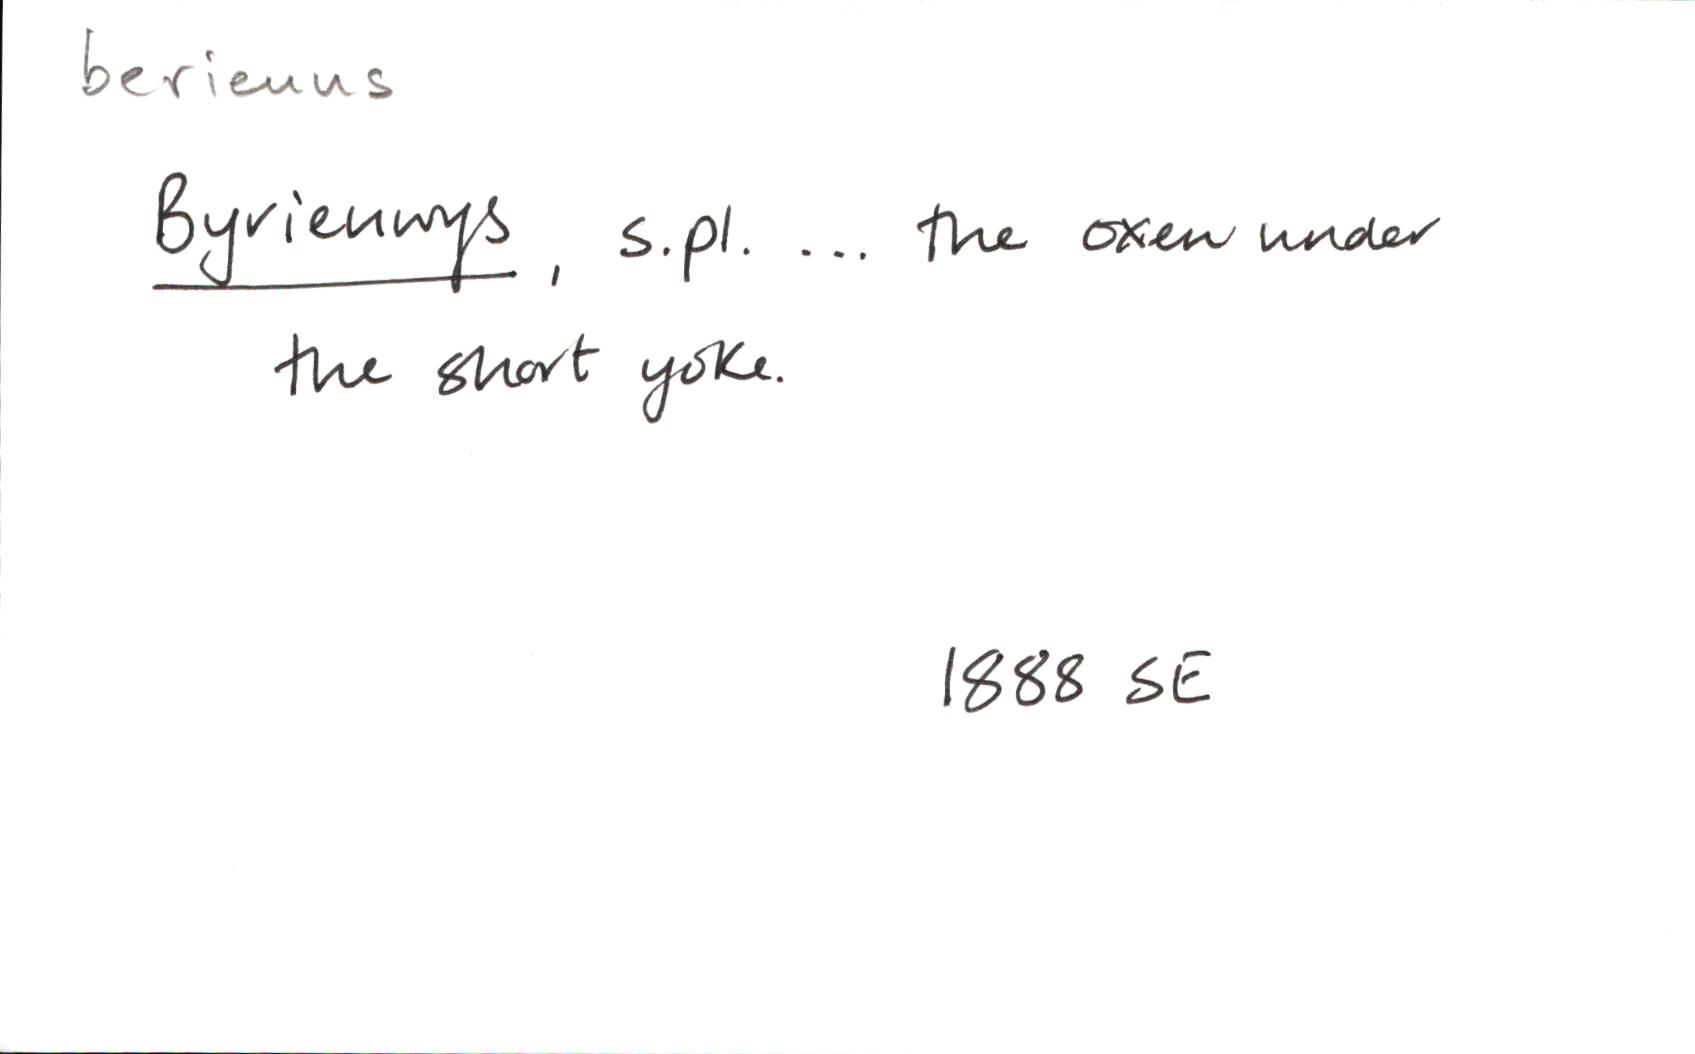 berieuus
Byrieuwys, s.pl. ... the oxen under
the short yoke.
1888 SE